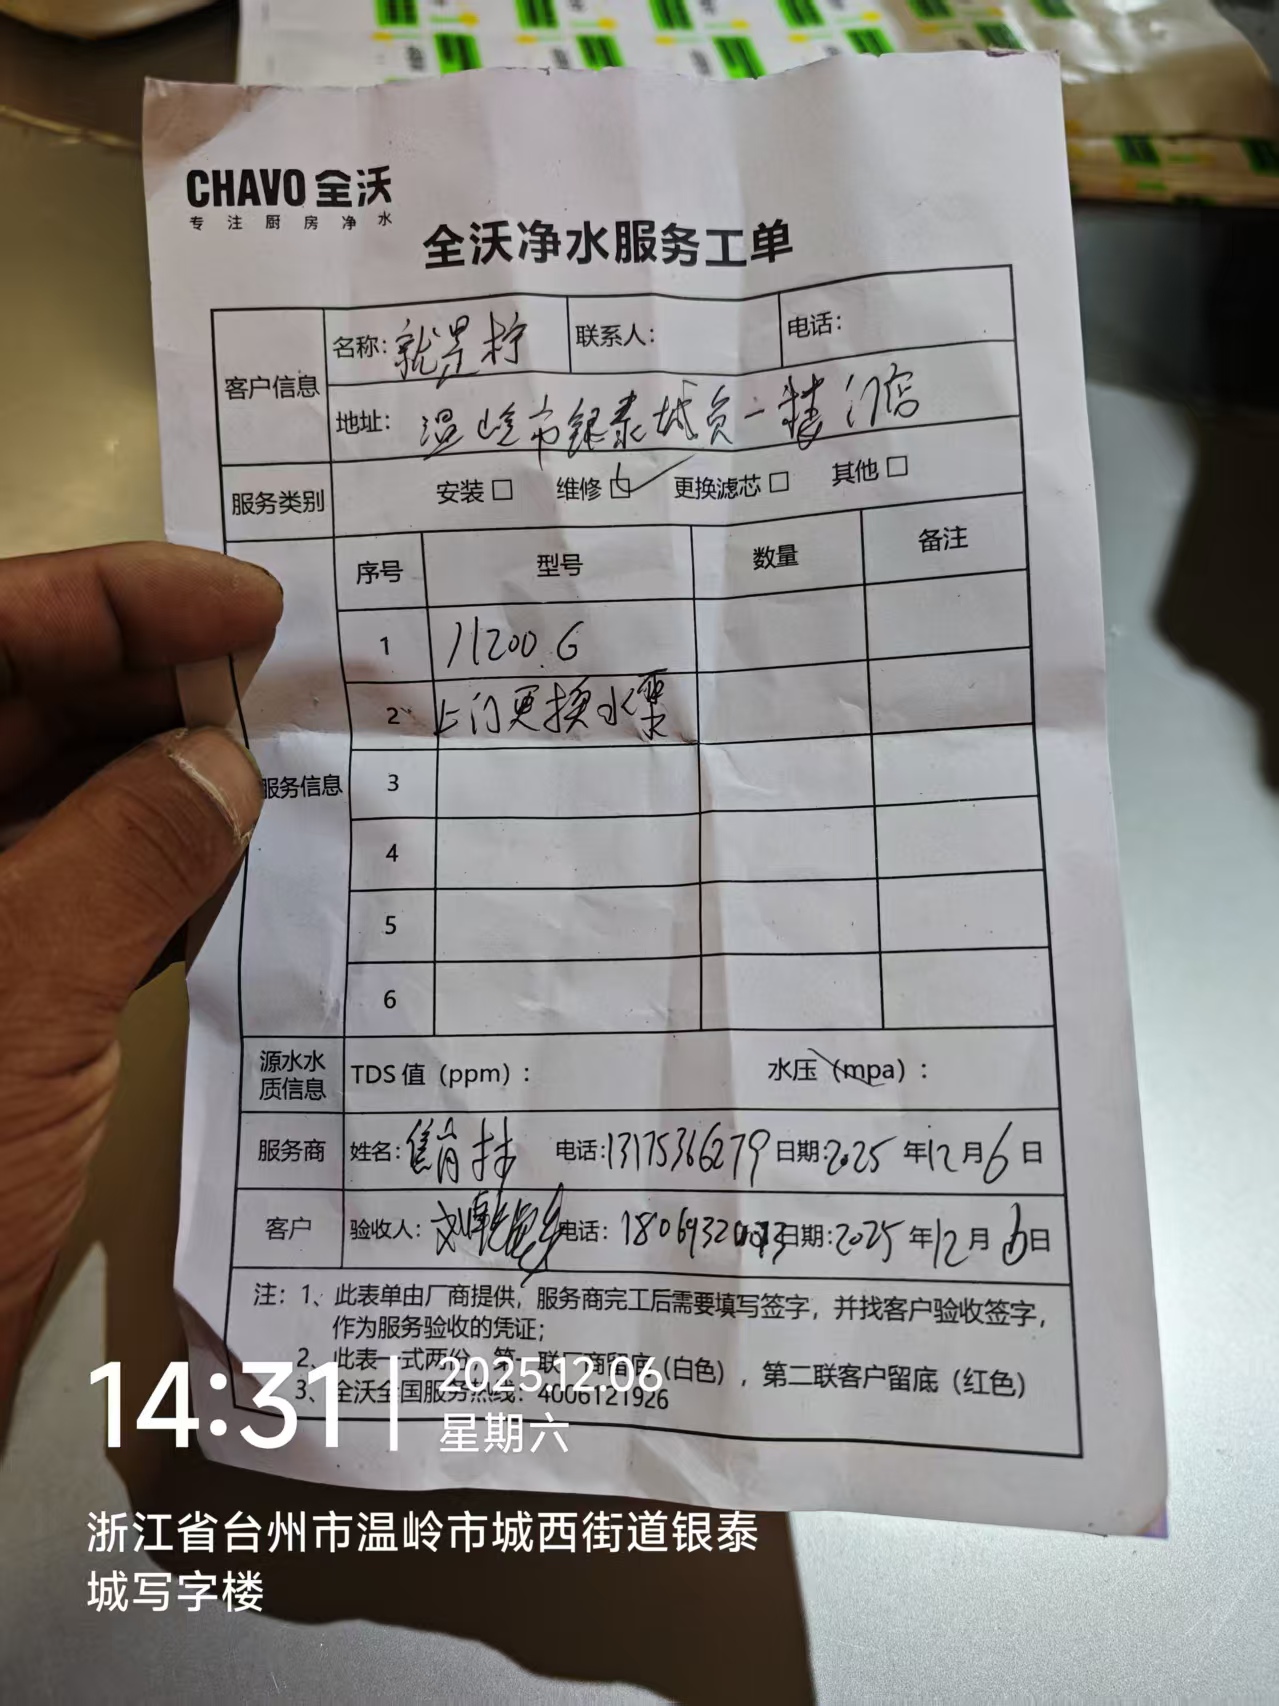 CHAVO 全沃
专注厨房净水
全沃净水服务工单
客户信息
名称: 就是柠
联系人:
电话:
地址: 温岭市银泰城负一楼门店
服务类别
安装□ 维修□✓ 更换滤芯□ 其他□
服务信息
序号 型号 数量 备注
1 J1200.G
2 上门更换水泵
3
4
5
6
源水水质信息
TDS 值（ppm）: 水压（mpa）:
服务商
姓名: 焦 电话:13175366279 日期:2025 年12月6日
客户
验收人: 刘 电话: 日期:2025 年12月6日
注: 1、此表单由厂商提供，服务商完工后需要填写签字，并找客户验收签字，
作为服务验收的凭证;
2、此表一式两份，第一联厂商留底（白色），第二联客户留底（红色）
3、全沃全国服务热线: 4006121926
14:31
2025.12.06
星期六
浙江省台州市温岭市城西街道银泰
城写字楼